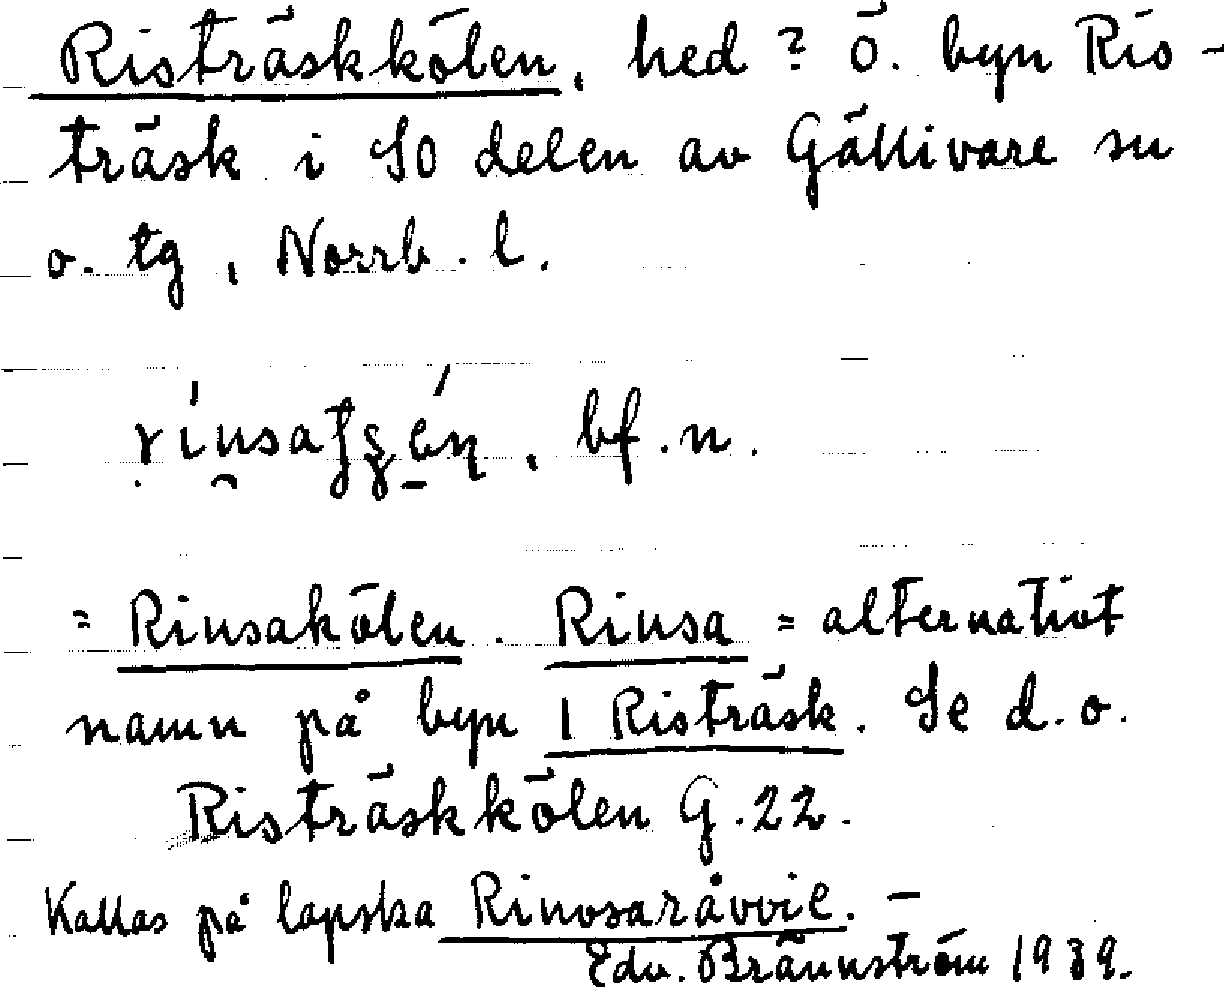 Risträskkölen, hed? Ö. byn Ris-
träsk i SO delen av Gällivare sn
o. tg, Norrb. l.
bf. n.
= Rinsakölen. Rinsa = alternativt
namn på byn 1 Risträsk. Se d. o.
Risträskkölen G. 22.
Kallas på lapska Rinosaråvvie. –
Edv. Brännström 1939.